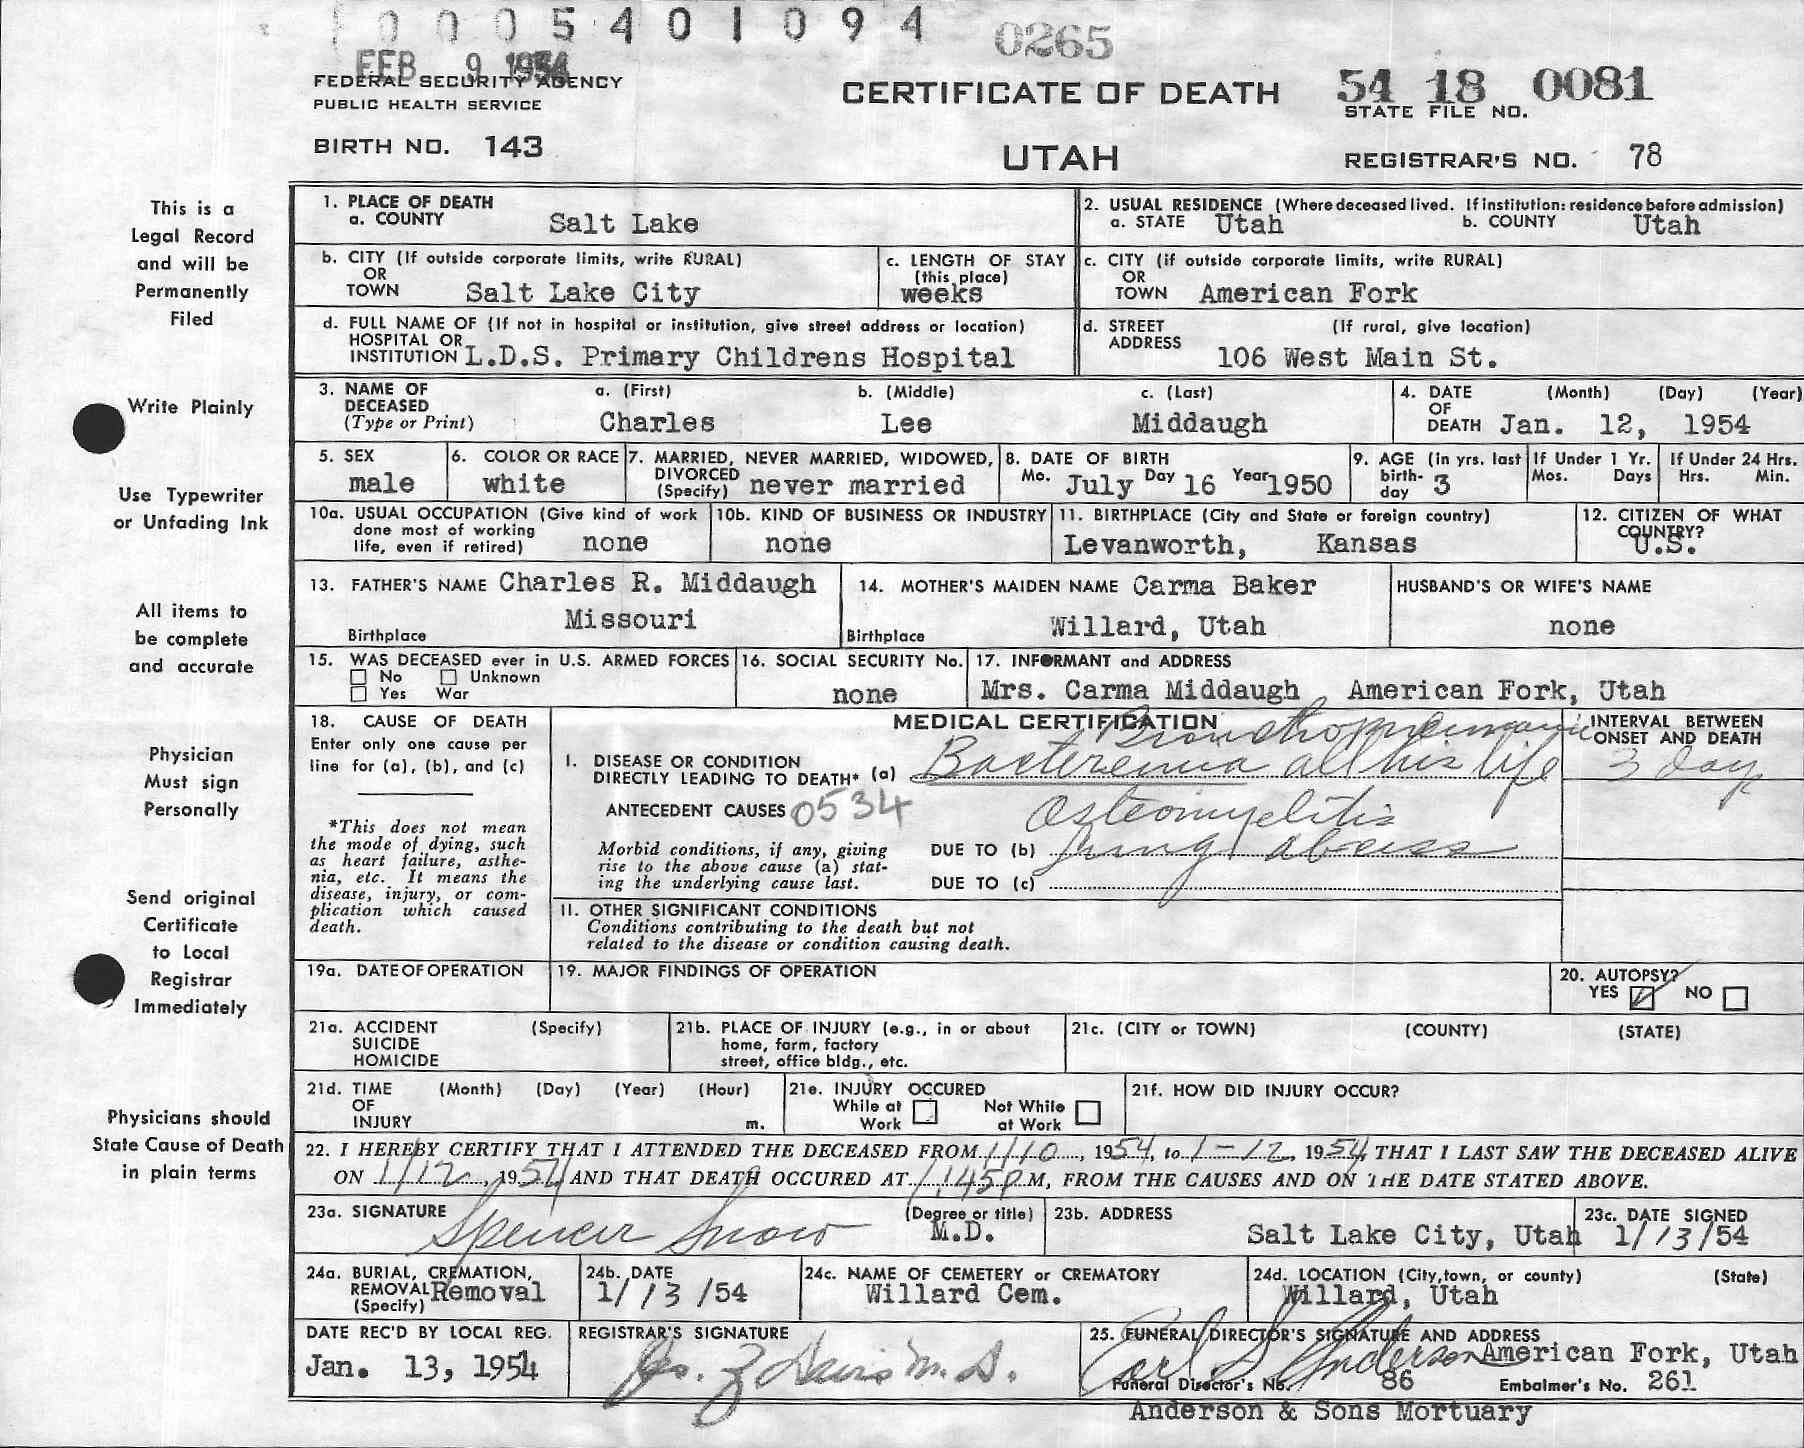 0005401094
0265
FEB 9 1954
FEDERAL SECURITY AGENCY
PUBLIC HEALTH SERVICE
CERTIFICATE OF DEATH
54 18 0081
STATE FILE NO.
BIRTH NO. 143
UTAH
REGISTRAR'S NO. 78
This is a
Legal Record
and will be
Permanently
Filed
Write Plainly
Use Typewriter
or Unfading Ink
All items to
be complete
and accurate
Physician
Must sign
Personally
Send original
Certificate
to Local
Registrar
Immediately
Physicians should
State Cause of Death
in plain terms
1. PLACE OF DEATH
a. COUNTY Salt Lake
2. USUAL RESIDENCE (Where deceased lived. If institution: residence before admission)
a. STATE Utah b. COUNTY Utah
b. CITY (If outside corporate limits, write RURAL)
OR
TOWN Salt Lake City
c. LENGTH OF STAY
(this place)
weeks
c. CITY (if outside corporate limits, write RURAL)
OR
TOWN American Fork
d. FULL NAME OF (If not in hospital or institution, give street address or location)
HOSPITAL OR
INSTITUTION L.D.S. Primary Childrens Hospital
d. STREET (If rural, give location)
ADDRESS
106 West Main St.
3. NAME OF a. (First) b. (Middle) c. (Last)
DECEASED
(Type or Print) Charles Lee Middaugh
4. DATE (Month) (Day) (Year)
OF
DEATH Jan. 12, 1954
5. SEX
male
6. COLOR OR RACE
white
7. MARRIED, NEVER MARRIED, WIDOWED,
DIVORCED
(Specify) never married
8. DATE OF BIRTH
Mo. July Day 16 Year 1950
9. AGE (in yrs. last
birth-
day 3
If Under 1 Yr.
Mos. Days
If Under 24 Hrs.
Hrs. Min.
10a. USUAL OCCUPATION (Give kind of work
done most of working
life, even if retired) none
10b. KIND OF BUSINESS OR INDUSTRY
none
11. BIRTHPLACE (City and State or foreign country)
Levanworth, Kansas
12. CITIZEN OF WHAT
COUNTRY?
U.S.
13. FATHER'S NAME Charles R. Middaugh
Missouri
Birthplace
14. MOTHER'S MAIDEN NAME Carma Baker
Birthplace Willard, Utah
HUSBAND'S OR WIFE'S NAME
none
15. WAS DECEASED ever in U.S. ARMED FORCES
No Unknown
Yes War
16. SOCIAL SECURITY No.
none
17. INFORMANT and ADDRESS
Mrs. Carma Middaugh American Fork, Utah
18. CAUSE OF DEATH
Enter only one cause per
line for (a), (b), and (c)
*This does not mean
the mode of dying, such
as heart failure, asthe-
nia, etc. It means the
disease, injury, or com-
plication which caused
death.
MEDICAL CERTIFICATION
Bronchopneumonia
I. DISEASE OR CONDITION
DIRECTLY LEADING TO DEATH* (a) Bacteremia all his life
INTERVAL BETWEEN
ONSET AND DEATH
3 day
ANTECEDENT CAUSES 0534
Osteomyelitis
Morbid conditions, if any, giving
rise to the above cause (a) stat-
ing the underlying cause last.
DUE TO (b) lung abcess
DUE TO (c)
II. OTHER SIGNIFICANT CONDITIONS
Conditions contributing to the death but not
related to the disease or condition causing death.
19a. DATE OF OPERATION
19. MAJOR FINDINGS OF OPERATION
20. AUTOPSY?
YES NO
21a. ACCIDENT (Specify)
SUICIDE
HOMICIDE
21b. PLACE OF INJURY (e.g., in or about
home, farm, factory
street, office bldg., etc.
21c. (CITY or TOWN) (COUNTY) (STATE)
21d. TIME (Month) (Day) (Year) (Hour)
OF
INJURY m.
21e. INJURY OCCURED
While at Work Not While at Work
21f. HOW DID INJURY OCCUR?
22. I HEREBY CERTIFY THAT I ATTENDED THE DECEASED FROM 1/10, 1954, to 1-12, 1954, THAT I LAST SAW THE DECEASED ALIVE
ON 1/12, 1954 AND THAT DEATH OCCURED AT 1:45P M, FROM THE CAUSES AND ON THE DATE STATED ABOVE.
23a. SIGNATURE (Degree or title)
Spencer Snow M.D.
23b. ADDRESS
Salt Lake City, Utah
23c. DATE SIGNED
1/13/54
24a. BURIAL, CREMATION,
REMOVAL Removal
(Specify)
24b. DATE
1/13/54
24c. NAME OF CEMETERY or CREMATORY
Willard Cem.
24d. LOCATION (City, town, or county) (State)
Willard, Utah
DATE REC'D BY LOCAL REG.
Jan. 13, 1954
REGISTRAR'S SIGNATURE
Jos. Z Davis M.D.
25. FUNERAL DIRECTOR'S SIGNATURE AND ADDRESS
Earl S Anderson American Fork, Utah
Funeral Director's No. 86 Embalmer's No. 261
Anderson & Sons Mortuary